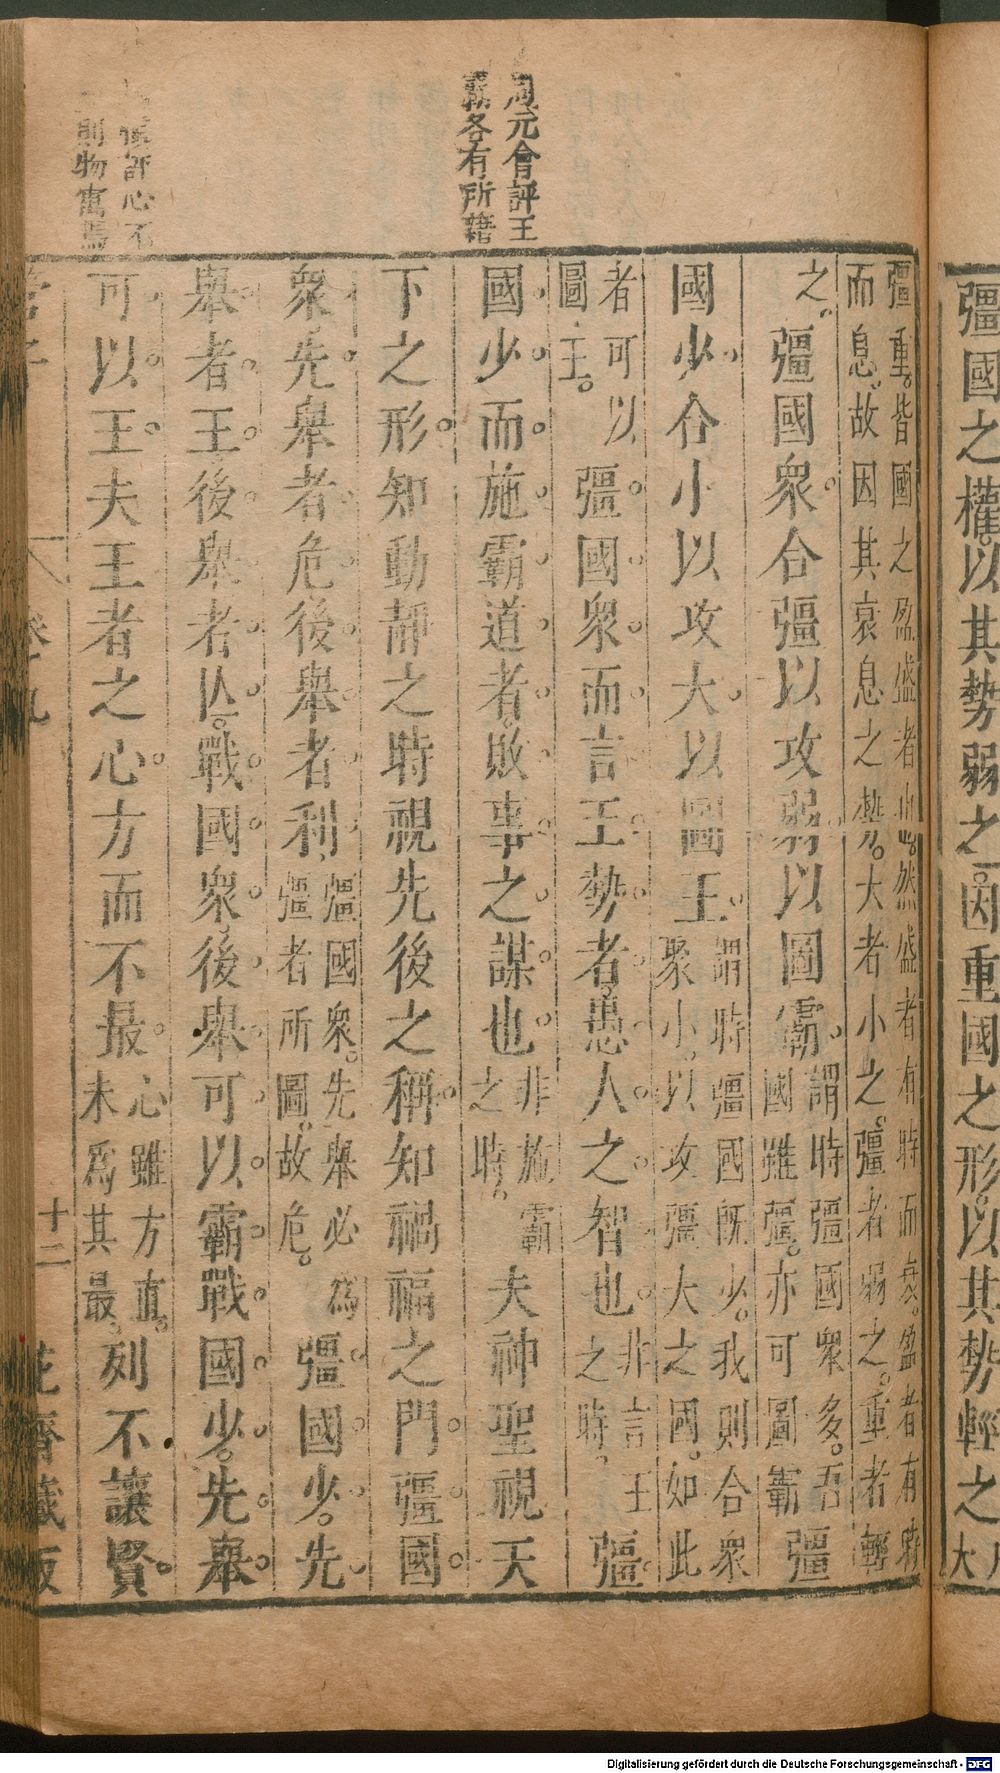 彊國之權以其勢弱之因重國之形以其勢輕之大
彊重皆國之盈盛者也然盛者有時而衰盈者有時
而息故因其衰息之勢大者小之彊者弱之重者輕
之彊國衆合彊以攻弱以圖霸謂時彊國衆多吾國雖彊亦可圖霸彊
國少合小以攻大以國王謂時彊國旣少我則合衆聚小以攻彊大之國如此
者可以圖王彊國衆而言王勢者愚人之智也非言王之時彊
國少而施霸道者敗事之謀也非施霸之時夫神聖視天
下之形知動靜之時視先後之稱知禍福之門彊國
衆先舉者危後舉者利彊國衆先舉必為彊者所圖故危彊國少先
舉者王後舉者亾戰國衆後舉可以霸戰國少先舉
可以王夫王者之心方而不最心雖方直未爲其最列不讓賢
十二
花齋藏版
元會評王
霸各有所藉
評心不
則物寓焉
Digitalisierung gefördert durch die Deutsche Forschungsgemeinschaft - DFG